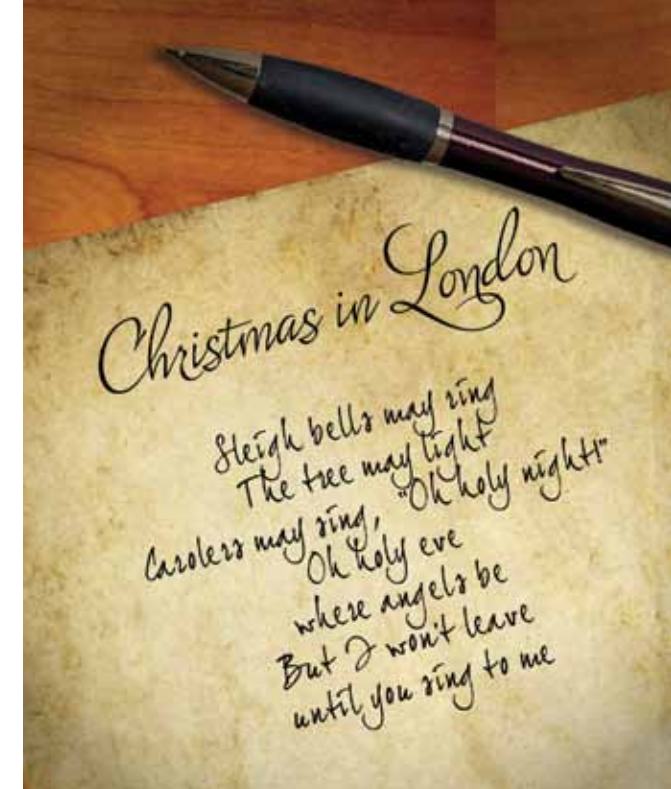 Christmas in London
Sleigh bells may ring
The tree may light
Carolers may sing, "Oh holy night!"
Oh holy eve
where angels be
But I won't leave
until you sing to me